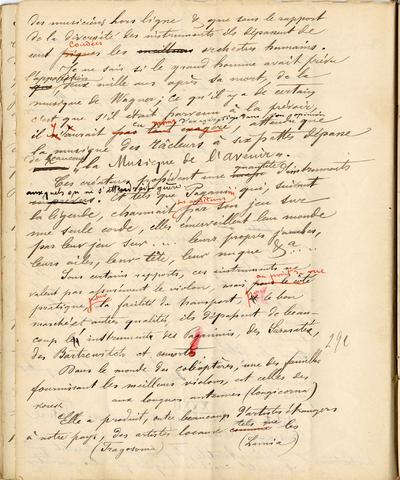 des musiciens hors ligne & que sous le rapport
de la diversité des instruments ils dépassent de
cent coudées les meilleurs orchestres humains.
Je ne sais si le grand homme avait prévu
l'apparition deux mille ans après sa mort, de la
musique de Wagner; ce qu'il y a de certain
c'est que s'il était parvenu à la prévoir,
il n'aurait pas
attendu que
la musique des râcleurs à six pattes dépasse
de beaucoup "la Musique de l'avenir".
Ces créatures possèdent une quantité d'instruments
auxquels on ne s'attendrait guère. Et tels que Paganini qui, suivant
la légende, charmait les auditeurs par son jeu sur
une seule corde, elles émerveillent leur monde
par leur jeu sur.... leurs propres jambes,
leurs ailes, leur tête, leur nuque & a....
Sous certains rapports, ces instruments ne
valent pas assurément le violon, mais au point de vue
pratique, par la facilité du transport, le bon
marché et autres qualités, ils dépassent de beau-
coup les instruments des Paganinis, des Sarasates,
des Barcewitch et consorts
291
Dans le monde des coléoptères, une des familles
fournissant les meilleurs violons, est celles des
aux longues antennes (longicorna)
Elle a produit, outre beaucoup d'artistes étrangers
à notre pays, des artistes locaux tels que les
(Tragosoma) (Lamia)